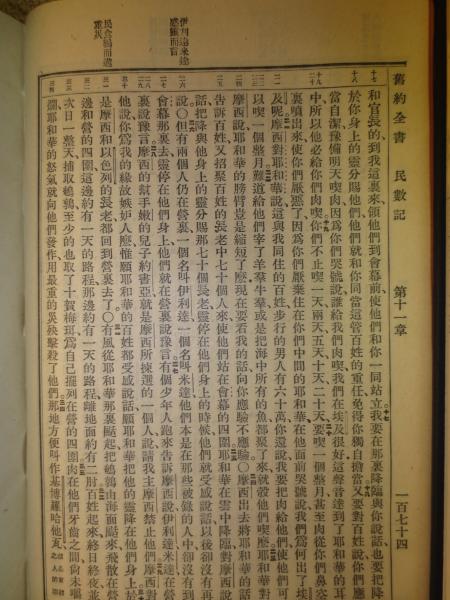 舊約全書 民數記 第十一章 一百七十四
和官長的到我這裏來領他們到會幕前使他們和你一同站立我要在那裏降臨與你說話也要把降
於你身上的靈分賜他們他們就和你同當這管百姓的重任免得你獨自擔當又要對百姓說你們應
當自潔豫備明天喫肉因爲你們哭號說誰給我們肉喫我們在埃及很好這聲音達到了耶和華的耳
中所以他必給你們肉喫你們不止喫一天兩天五天十天二十天要喫一個整月甚至肉從你們鼻
裏噴出來使你們厭惡了因爲你們厭棄住在你們中間的耶和華在他面前哭號說我們爲何出了埃
及呢摩西對耶和華說這與我同住的百姓步行的男人有六十萬你還說我要把肉給他們使他們可
以喫一個整月難道給他們宰了羊羣牛羣或是把海中所有的魚都聚了來就彀他們喫麼耶和華對
摩西說耶和華的膀臂豈是縮短了麼現在要看我的話向你應驗不應驗○摩西出去將耶和華的話
告訴百姓又招聚百姓的長老中七十個人來使他們站在會幕的四圍耶和華在雲中降臨對摩西說
話把降與他身上的靈分賜那七十個長老靈停在他們身上的時候他們就受感說話以後卻沒有再
說○但有兩個人仍在營裏一個名叫伊利達一個名叫米達他們本是在那些被錄的人中卻沒有到
會幕那裏去靈停在他們身上他們就在營裏說豫言有個少年人跑來告訴摩西說伊利達米達在營
裏說豫言摩西的幫手嫩的兒子約書亞就是摩西所揀選的一個人說請我主摩西禁止他們摩西對
他說你爲我的緣故嫉妒人麼惟願耶和華的百姓都受感說話願耶和華把他的靈降在他們身上於
是摩西和以色列的長老都回到營裏去了○有風從耶和華那裏颳起把鵪鶉由海面颳來飛散在營
邊和營的四圍這邊約有一天的路程那邊約有一天的路程離地面約有二肘百姓起來終日終夜並
次日一整天捕取鵪鶉至少的也取了十賀梅珥爲自己擺列在營的四圍肉在他們牙齒之間尚未嚼
爛耶和華的怒氣就向他們發作用最重的災殃擊殺了他們那地方便叫作基博羅哈他瓦
伊利達米達
感靈而言
民貪鶉而遭
重災